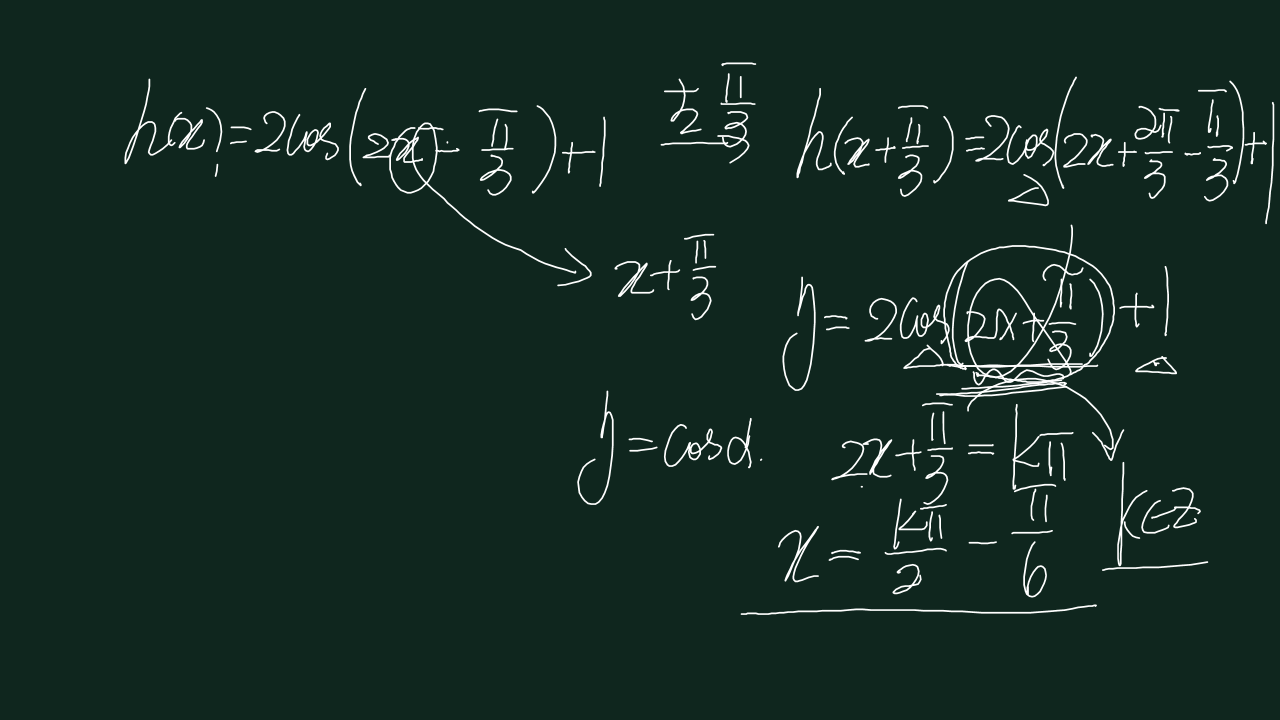 h(x) = 2cos(2x - π/3) + 1
左 π/3
h(x + π/3) = 2cos(2x + 2π/3 - π/3) + 1
x + π/3
y = 2cos(2x + π/3) + 1
y = cosα.
2x + π/3 = kπ
x = kπ/2 - π/6
k∈Z